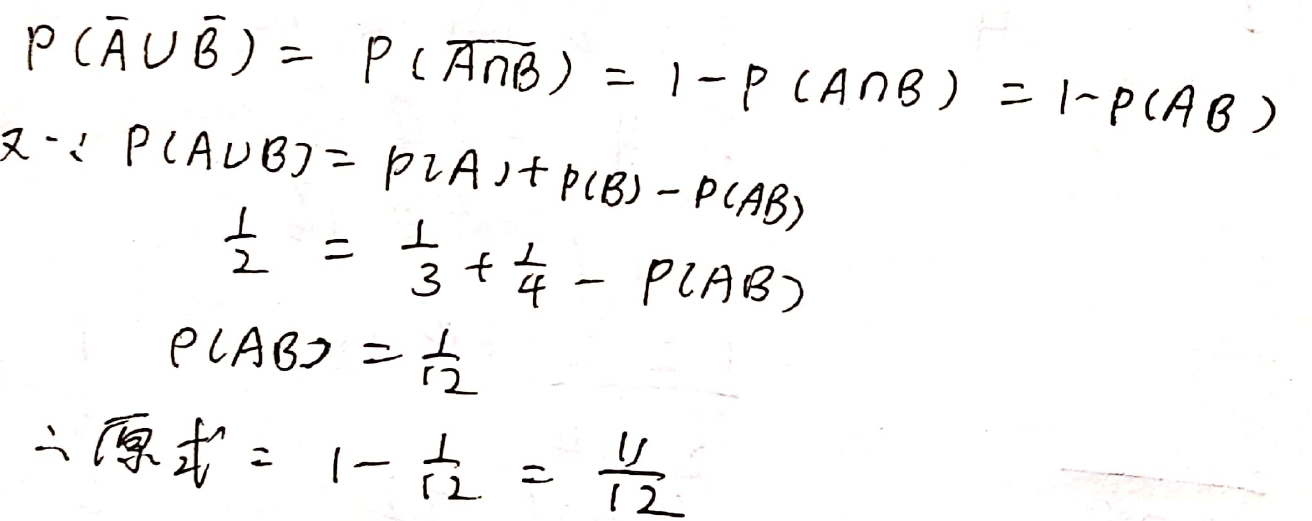 P(ĀUB̄) = P(A̅∩̅B̅) = 1-P(A∩B) = 1-P(AB)
又∵ P(AUB) = P(A)+P(B)-P(AB)
1/2 = 1/3 + 1/4 - P(AB)
P(AB) = 1/12
∴原式 = 1 - 1/12 = 11/12